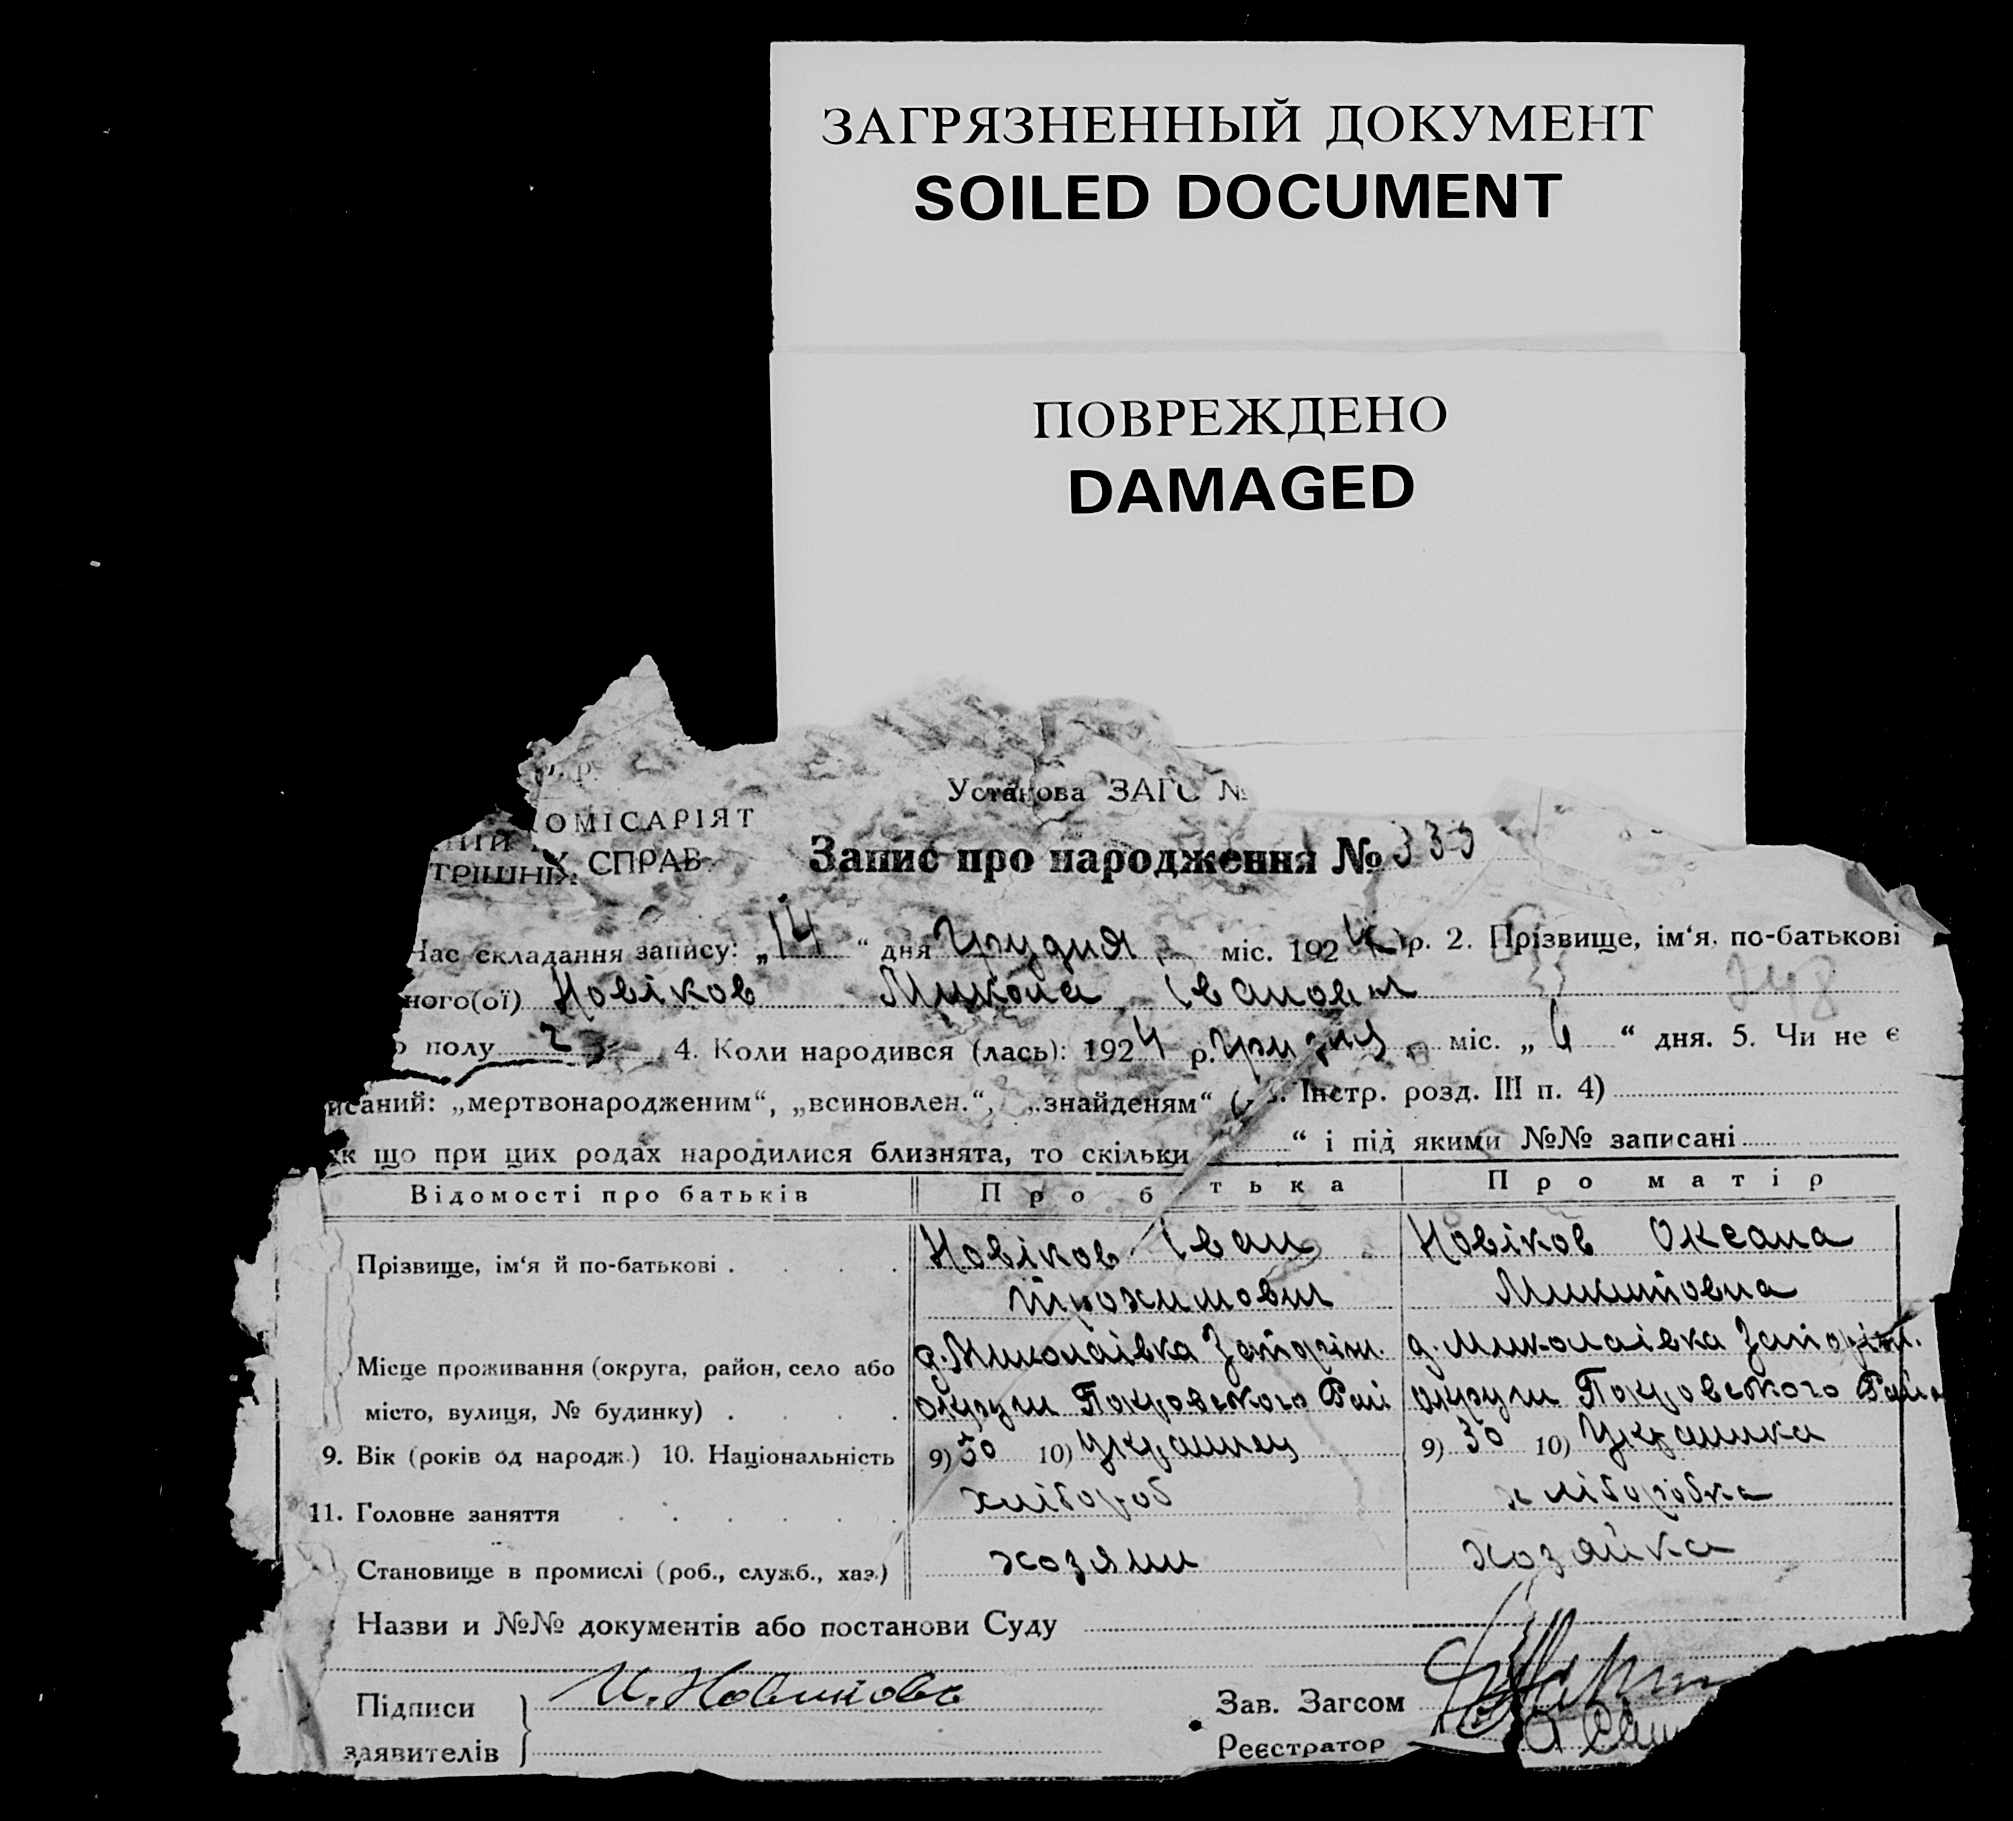 ЗАГРЯЗНЕННЫЙ ДОКУМЕНТ
SOILED DOCUMENT
ПОВРЕЖДЕНО
DAMAGED
Установа ЗАГС №
ОМІСАРІЯТ
ТРІШНІХ СПРАВ
Запис про народження № 339
Час складання запису: „14“ дня Грудня міс. 1924 р. 2. Прізвище, ім‘я, по-батькові
ного(ої) Новіков Микола Іванович
248
полу 4. Коли народився (лась): 1924 р. грудня міс. „6“ дня. 5. Чи не є
исаний: „мертвонародженим“, „всиновлен.“, „знайденям“ Інстр. розд. III п. 4)
к що при цих родах народилися близнята, то скільки “ і під якими №№ записані
Відомості про батьків Про б тька Про матір
Прізвище, ім‘я й по-батькові Новіков Іван Новіков Оксана
Трохимович Микитовна
Місце проживання (округа, район, село або д. Миколаівка Запоріж. д. Миколаівка Запоріж.
місто, вулиця, № будинку) округи Покровського Рай округи Покровського Район
9. Вік (років од народж.) 10. Національність 9) 30 10) Українец 9) 30 10) Українка
11. Головне заняття хлібороб хліборобка
Становище в промислі (роб., служб., хаз.) хозяин хозяйка
Назви и №№ документів або постанови Суду
Підписи И. Новиковъ Зав. Загсом
заявителів Реєстратор